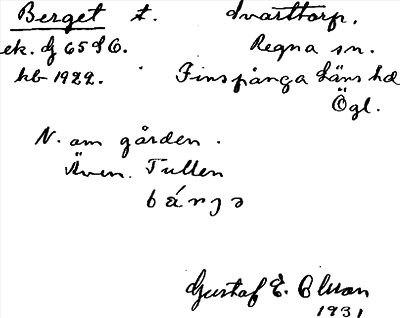 Berget t. Svarttorp.
ek. bl 65 SO. Regna sn.
kb 1922. Finspånga läns hd
Ögl.
N. om gården.
Även. Tullen
Gustaf E. Olsson
1931